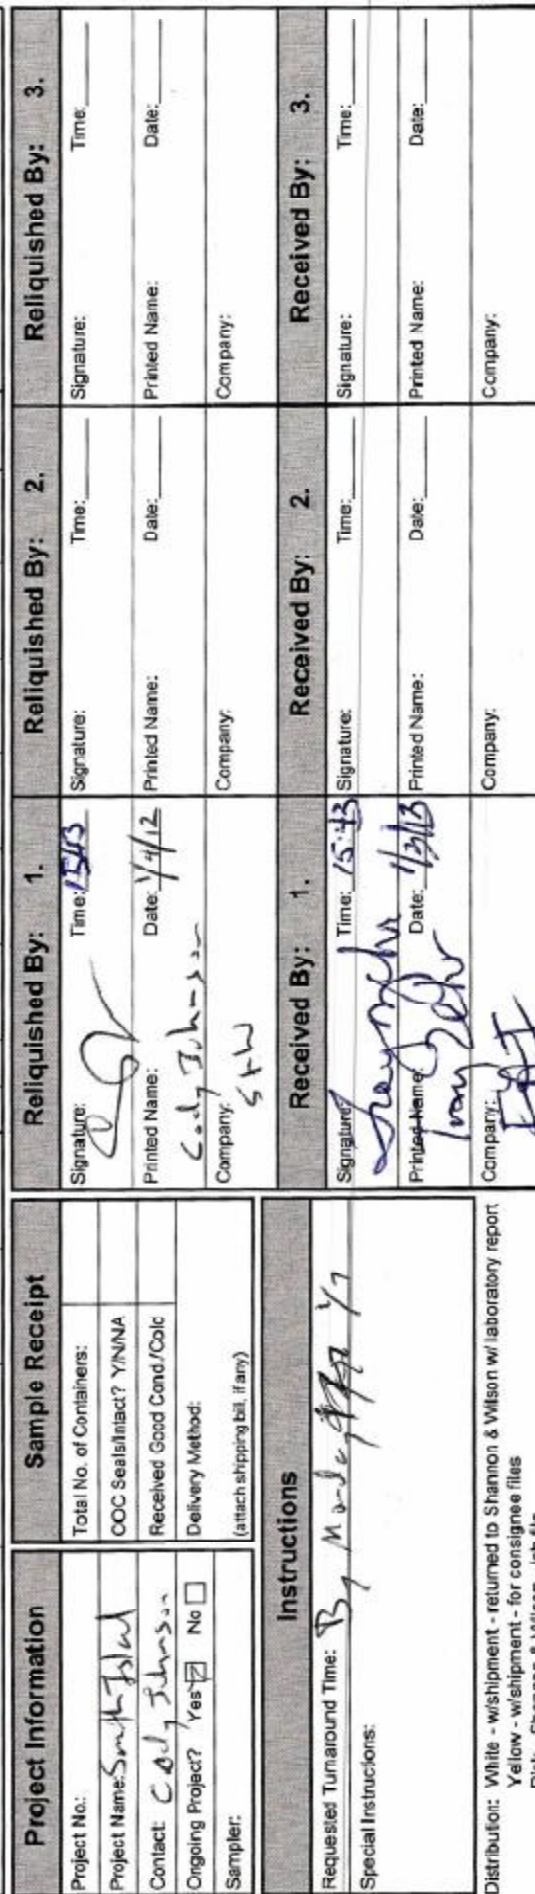 Project Information
Project No.:
Project Name: Smith Island
Contact: Cody Johnson
Ongoing Project? Yes ☑ No ☐
Sampler:
Sample Receipt
Total No. of Containers:
COC Seals/Intact? Y/N/NA
Received Good Cond./Cold
Delivery Method:
(attach shipping bill, if any)
Instructions
Requested Turnaround Time: By Monday 1/7
Special Instructions:
Distribution: White - w/shipment - returned to Shannon & Wilson w/ laboratory report
Yellow - w/shipment - for consignee files
Reliquished By: 1.
Signature: Time: 1543
Printed Name: Date: 1/4/12
Cody Johnson
Company: S+W
Reliquished By: 2.
Signature: Time:
Printed Name: Date:
Company:
Reliquished By: 3.
Signature: Time:
Printed Name: Date:
Company:
Received By: 1.
Signature: Time: 15:43
Printed Name: Date: 1/3/13
Company:
Received By: 2.
Signature: Time:
Printed Name: Date:
Company:
Received By: 3.
Signature: Time:
Printed Name: Date:
Company: